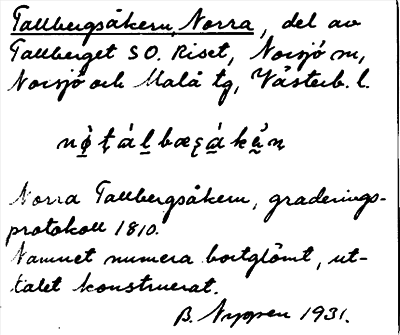 Tallbergsåkern, Norra, del av
Tallberget SO. Riset, Norsjö sn,
Norsjö och Malå tg, Västerb. l.
Norra Tallbergsåkern, graderings-
protokoll 1810.
Namnet numera bortglömt, ut-
talet konstruerat.
B. Nygren 1931.